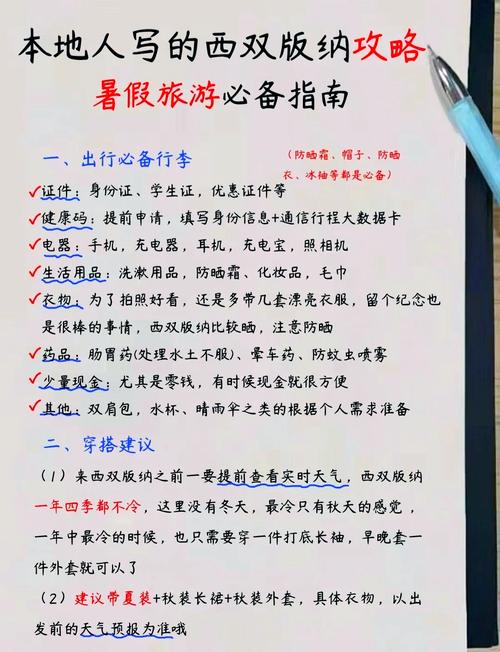 本地人写的西双版纳攻略
暑假旅游必备指南
一、出行必备行李
(防晒霜、帽子、防晒
衣、冰袖等都是必备)
✓证件：身份证、学生证，优惠证件等
✓健康码：提前申请，填写身份信息+通信行程大数据卡
✓电器：手机，充电器，耳机，充电宝，照相机
✓生活用品：洗漱用品，防晒霜、化妆品，毛巾
✓衣物：为了拍照好看，还是多带几套漂亮衣服，留个纪念也
是很棒的事情，西双版纳比较晒，注意防晒
✓药品：肠胃药(处理水土不服)、晕车药、防蚊虫喷雾
✓少量现金：尤其是零钱，有时候现金就很方便
✓其他：双肩包，水杯、晴雨伞之类的根据个人需求准备
二、穿搭建议
（1）来西双版纳之前一要提前查看实时天气，西双版纳
一年四季都不冷，这里没有冬天，最冷只有秋天的感觉，
一年中最冷的时候，也只需要穿一件打底长袖，早晚套一
件外套就可以了
（2）建议带夏装+秋装长裙+秋装外套，具体衣物，以出
发前的天气预报为准哦